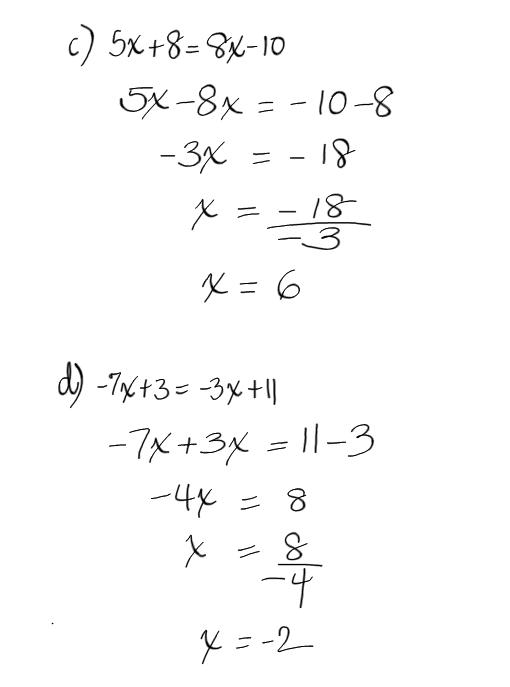 c) 5x+8=8x-10
5x-8x = -10-8
-3x = -18
x = -18/-3
x = 6
d) -7x+3=-3x+11
-7x+3x = 11-3
-4x = 8
x = 8/-4
x = -2